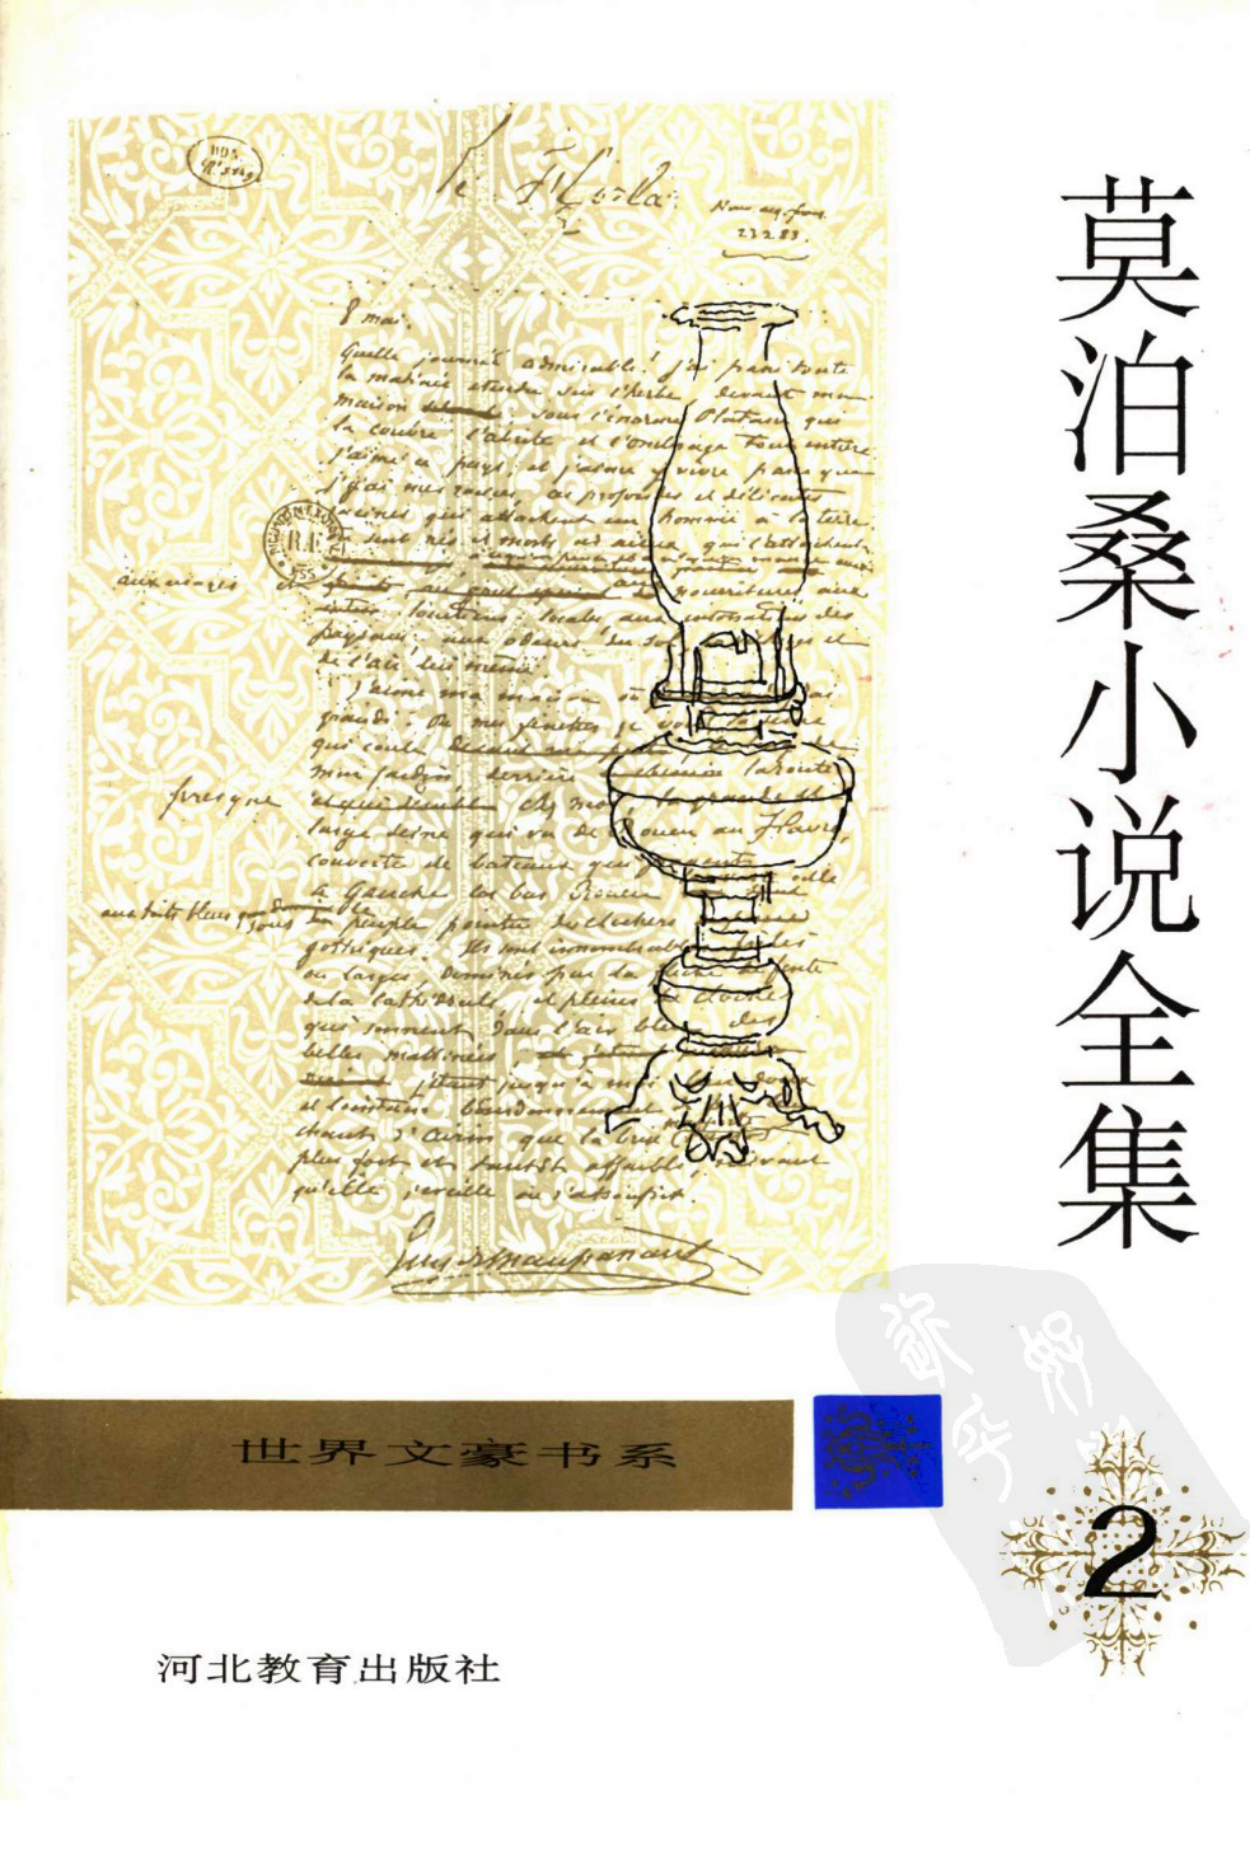 莫泊桑小说全集
Le Horla
Nouv. acq. franç.
23283.
8 mai.
Quelle journée admirable! j'ai passé toute
la matinée étendu sur l'herbe, devant ma
maison sous l'énorme Platane qui
la couvre l'abrite et l'ombrage tout entière.
J'aime ce pays, et j'aime y vivre parce que
j'y ai mes racines, ces profondes et délicates
racines qui attachent un homme à la terre
aux usages et
nourritures aux
locutions locales, aux intonations des
paysans, aux odeurs du sol
de l'air lui même
J'aime ma maison où
grandi. De mes fenêtres je vois la Seine
qui coule
mon jardin, derrière la route
presque
chez moi la grande et
large Seine qui va de Rouen au Havre,
couverte de bateaux qui passent
à gauche là bas Rouen
aux toits bleus sous le peuple pointu des clochers
gothiques. Ils sont innombrables
ou larges, dominés par la flèche de fonte
de la cathédrale, et pleins de cloches
qui sonnent dans l'air bleu des
belles matinées,
jetant jusqu'à moi leur doux
et lointain bourdonnement
chant d'airain que la brise
plus fort et tantôt affaibli, suivant
qu'elle s'éveille ou s'assoupit.
Guy de Maupassant
世界文豪书系
2
河北教育出版社